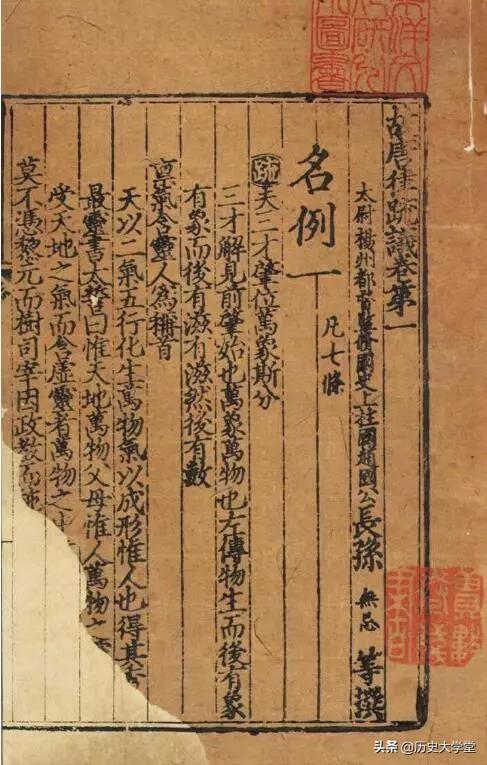 故唐律疏議卷第一
太尉揚州都督監修國史上柱國趙國公長孫無忌等撰
名例一
凡七條
疏夫三才肇位萬象斯分
三才解見前肇始也萬象萬物也左傳物生而後有象
有象而後有滋有滋然後有數
稟氣含靈人爲稱首
天以二氣五行化生萬物氣以成形惟人也得其
最靈書太誓曰惟天地萬物父母惟人萬物之
受天地之氣而含虛靈者萬物之
莫不憑黎元而樹司宰因政教而
头条 @历史大学堂